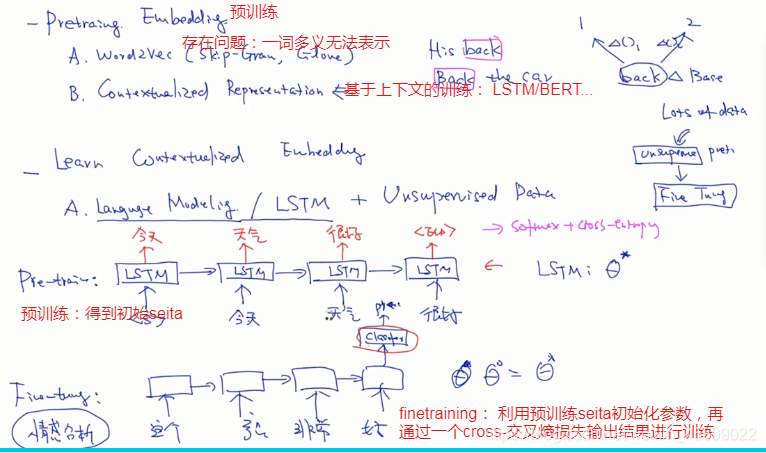 - Pretraing Embedding. 预训练
存在问题：一词多义无法表示
A. Word2Vec (Skip-Gram, Glove)
His back
1 2
back △ Base
B. Contextualized Representation ← 基于上下文的训练： LSTM/BERT...
Back the car
Lots of data
- Learn Contextualized Embeddig
Unsupervise
Fine Tuning
A. Language Modelig / LSTM + Unsupervised Data
今天 天气 很好
→ softmax + cross-entropy
Pre-train: LSTM → LSTM → LSTM → LSTM ← LSTM: θ*
预训练：得到初始seita
<s> 今天 天气 很好
Classifier
θ* θ° =
Fine-tuning:
finetraining： 利用预训练seita初始化参数，再
通过一个cross-交叉熵损失输出结果进行训练
情感分析 非常